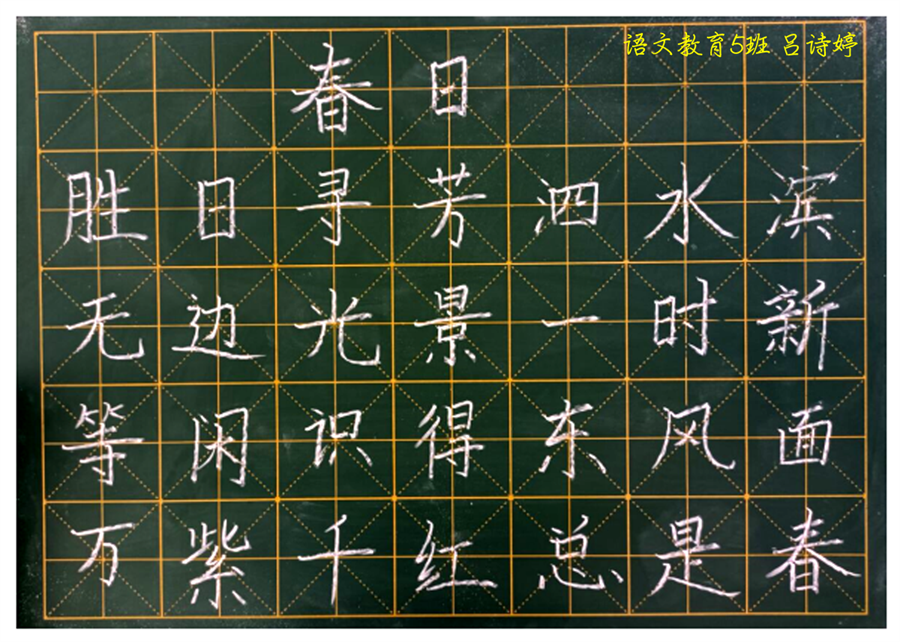 语文教育5班 吕诗婷
春日
胜日寻芳泗水滨
无边光景一时新
等闲识得东风面
万紫千红总是春